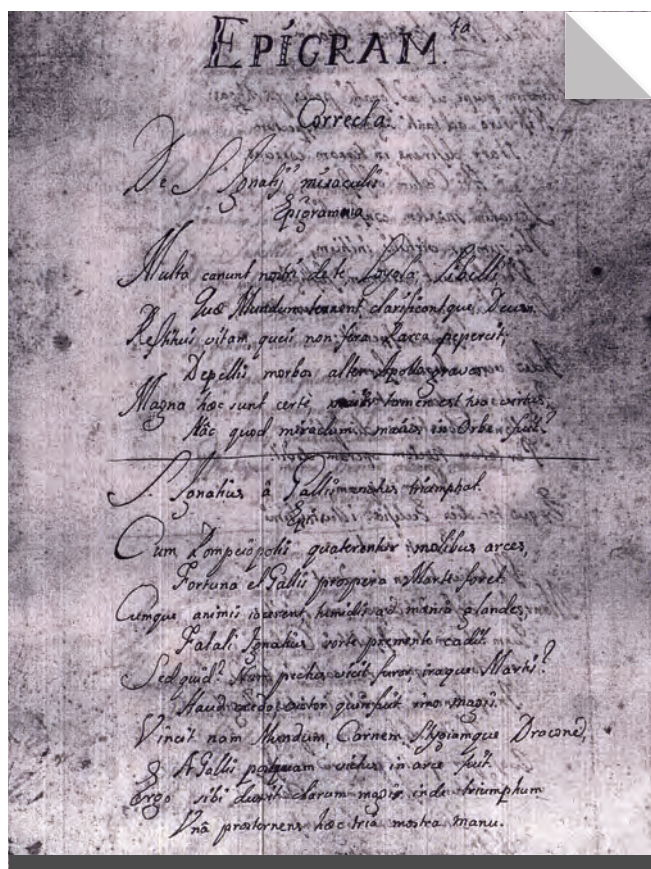 EPIGRAM.ta
Correcta.
De S. Ignatij miraculis
Epigramma
Multa canunt nobis de te Loyola, Libelli
Quæ Mundum tenent clarificantque Deum.
Restituis vitam, queis non fera Parca pepercit,
Depellis morbos alter Apollo graves
Magna hæc sunt certè, tamen est hæc virtus,
Hâc quod miraclum maius in Orbe fuit?
S. Ignatius â triumphat.
Epig.
Cum Pompeiopolis quaterentur molibus arces,
Fortuna et Gallis prospera Marte foret
Cumque animis iacerent tumidis ad mænia glandes,
Fatali Ignatius sorte premente cadit.
Sed quid? Num pectus vicit furor iraque Martis?
Haud credo victor quin fuit imo magis.
Vincit nam Mundum, Carnem, Stygiumque Draconē,
A Gallis postquam victus in arce fuit.
Ergo sibi duxit clarum magis inde triumphum
Vnâ prosternens hæc tria mostra manu.